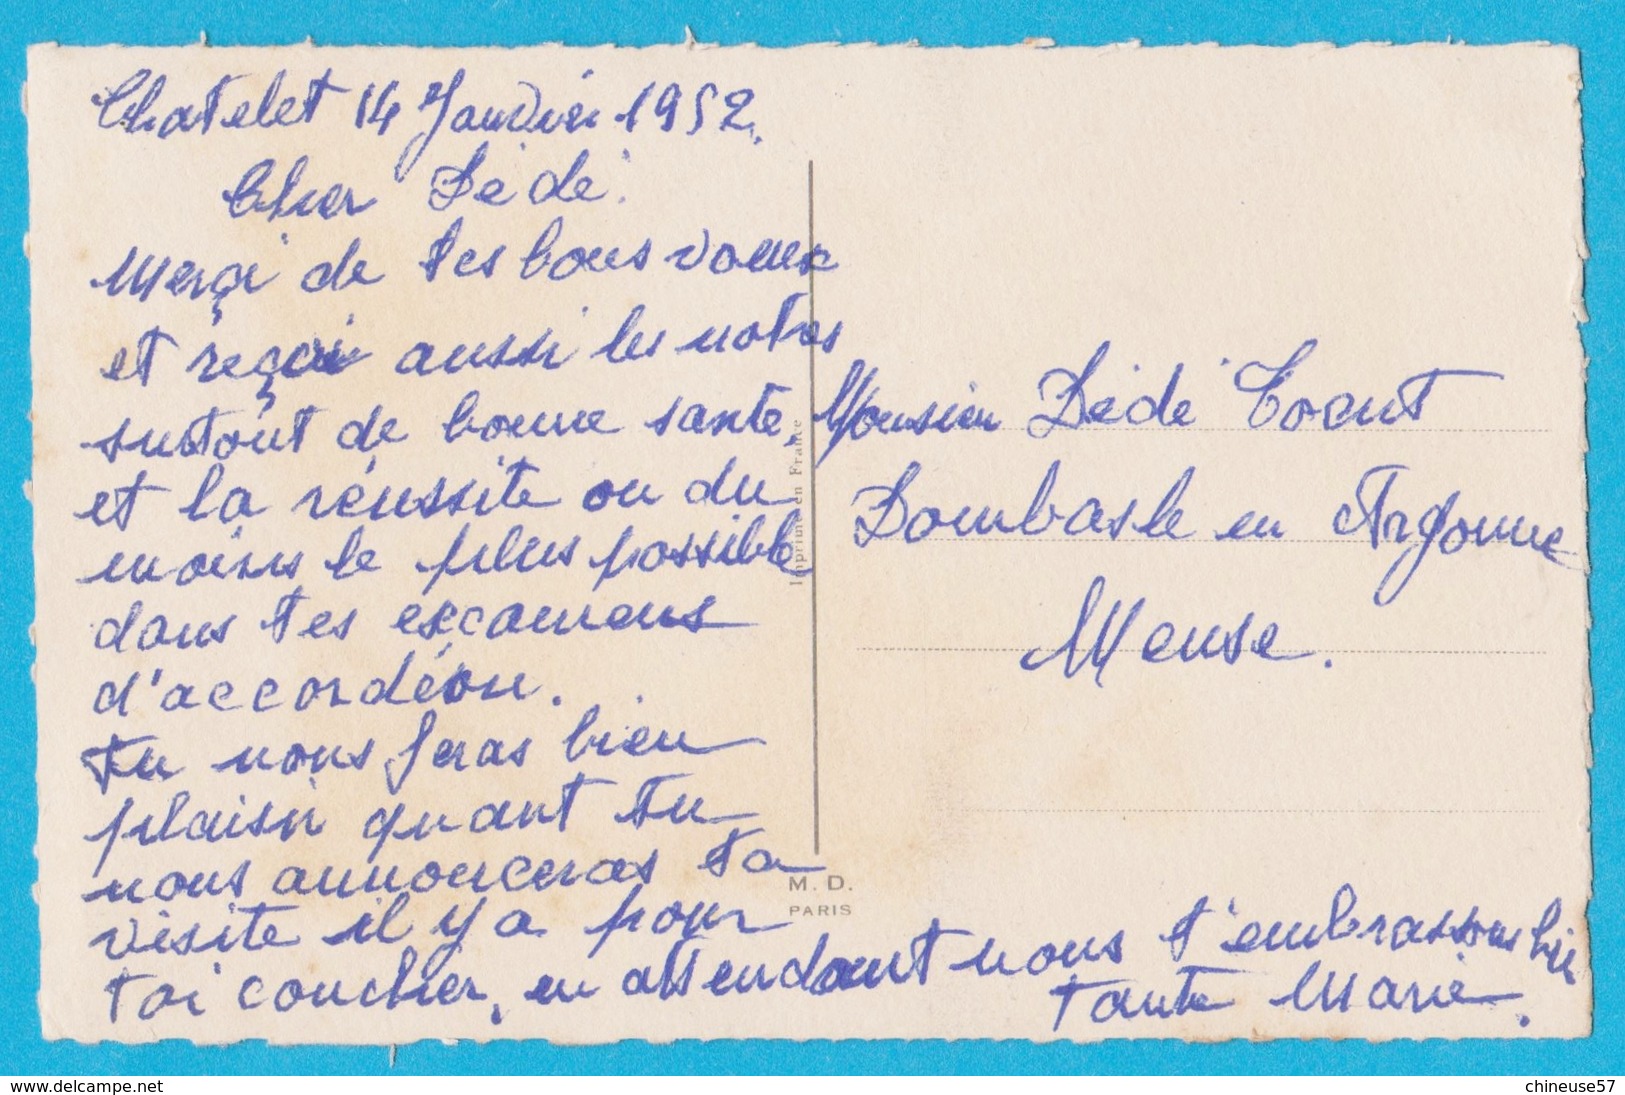 Chatelet 14 Janvier 1952.
Cher Dédé.
Merçi de tes bons voeux
et reçoi aussi les notres
surtout de bonne sante.
et la réussite ou du
moins le plus possible
dans tes examens
d'accordéon.
Tu nous feras bien
plaisir quant tu
nous annonceras ta
visite il y a pour
toi coucher, en attendant nous t'embrassons bien
Tante Marie.
Monsieur Dédé
Dombasle en Argonne
Meuse.
Imprimé en France
M. D.
PARIS
www.delcampe.net
chineuse57